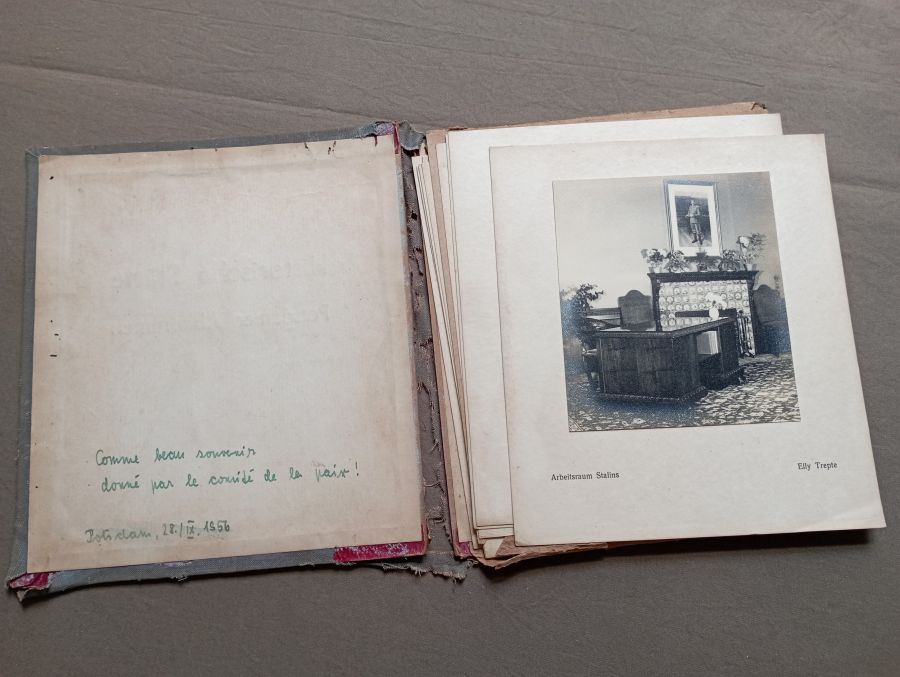 Comme beau souvenir
donné par le comité de la paix !
Potsdam, 28./IX. 1956
Arbeitsraum Stalins
Elly Trepte